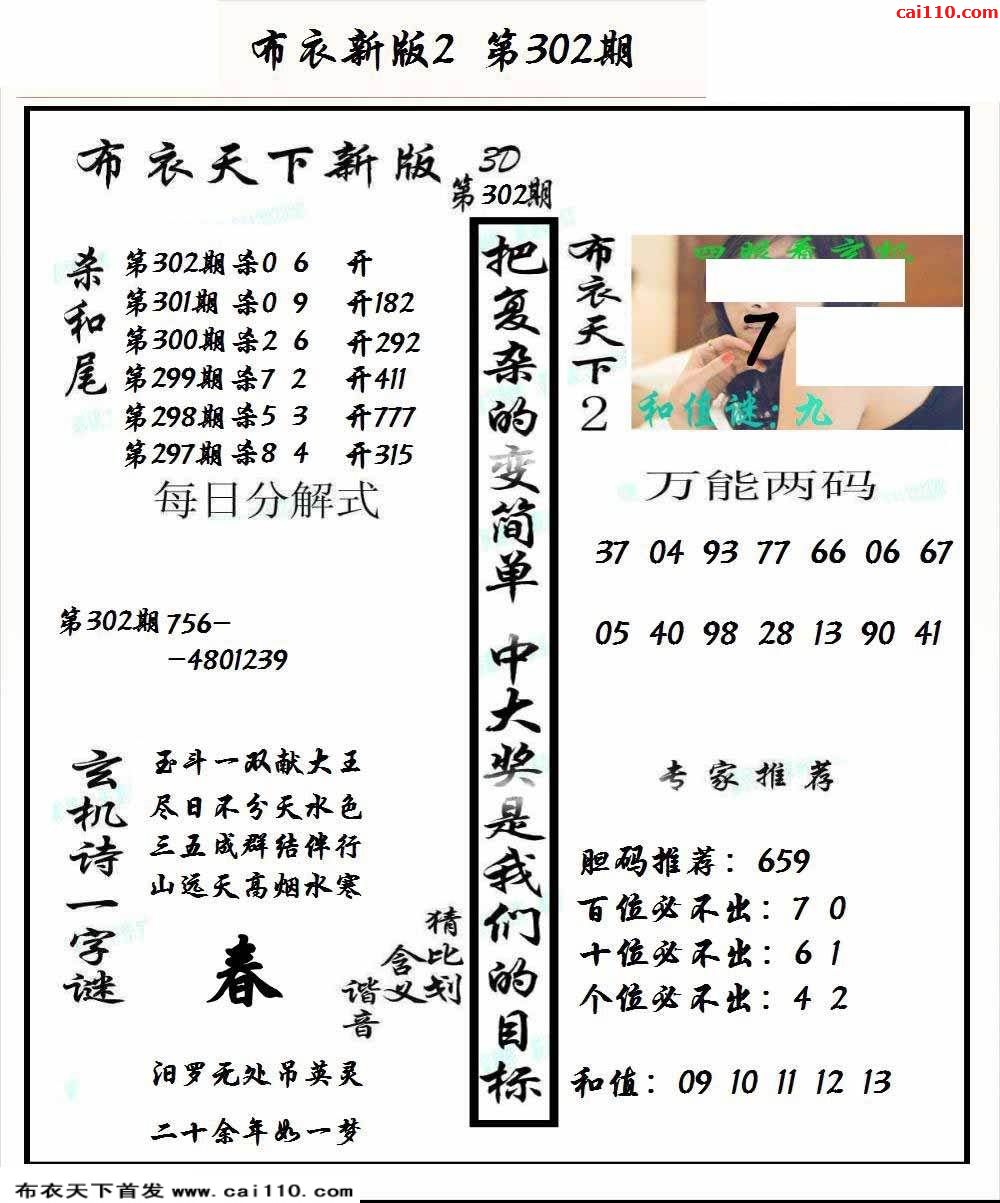 cai110.com
布衣新版2 第302期
布衣天下新版
3D
第302期
杀和尾
第302期 杀0 6 开
第301期 杀0 9 开182
第300期 杀2 6 开292
第299期 杀7 2 开411
第298期 杀5 3 开777
第297期 杀8 4 开315
每日分解式
第302期 756-
-4801239
玄机诗一字谜
玉斗一双献大王
尽日不分天水色
三五成群结伴行
山远天高烟水寒
春
猜比划
含义
谐音
汨罗无处吊英灵
二十余年如一梦
把复杂的变简单 中大奖是我们的目标
布衣天下2
四眼看玄机
7
和值谜:九
万能两码
37 04 93 77 66 06 67
05 40 98 28 13 90 41
专家推荐
胆码推荐：659
百位必不出：7 0
十位必不出：6 1
个位必不出：4 2
和值：09 10 11 12 13
布衣天下首发 www.cai110.com